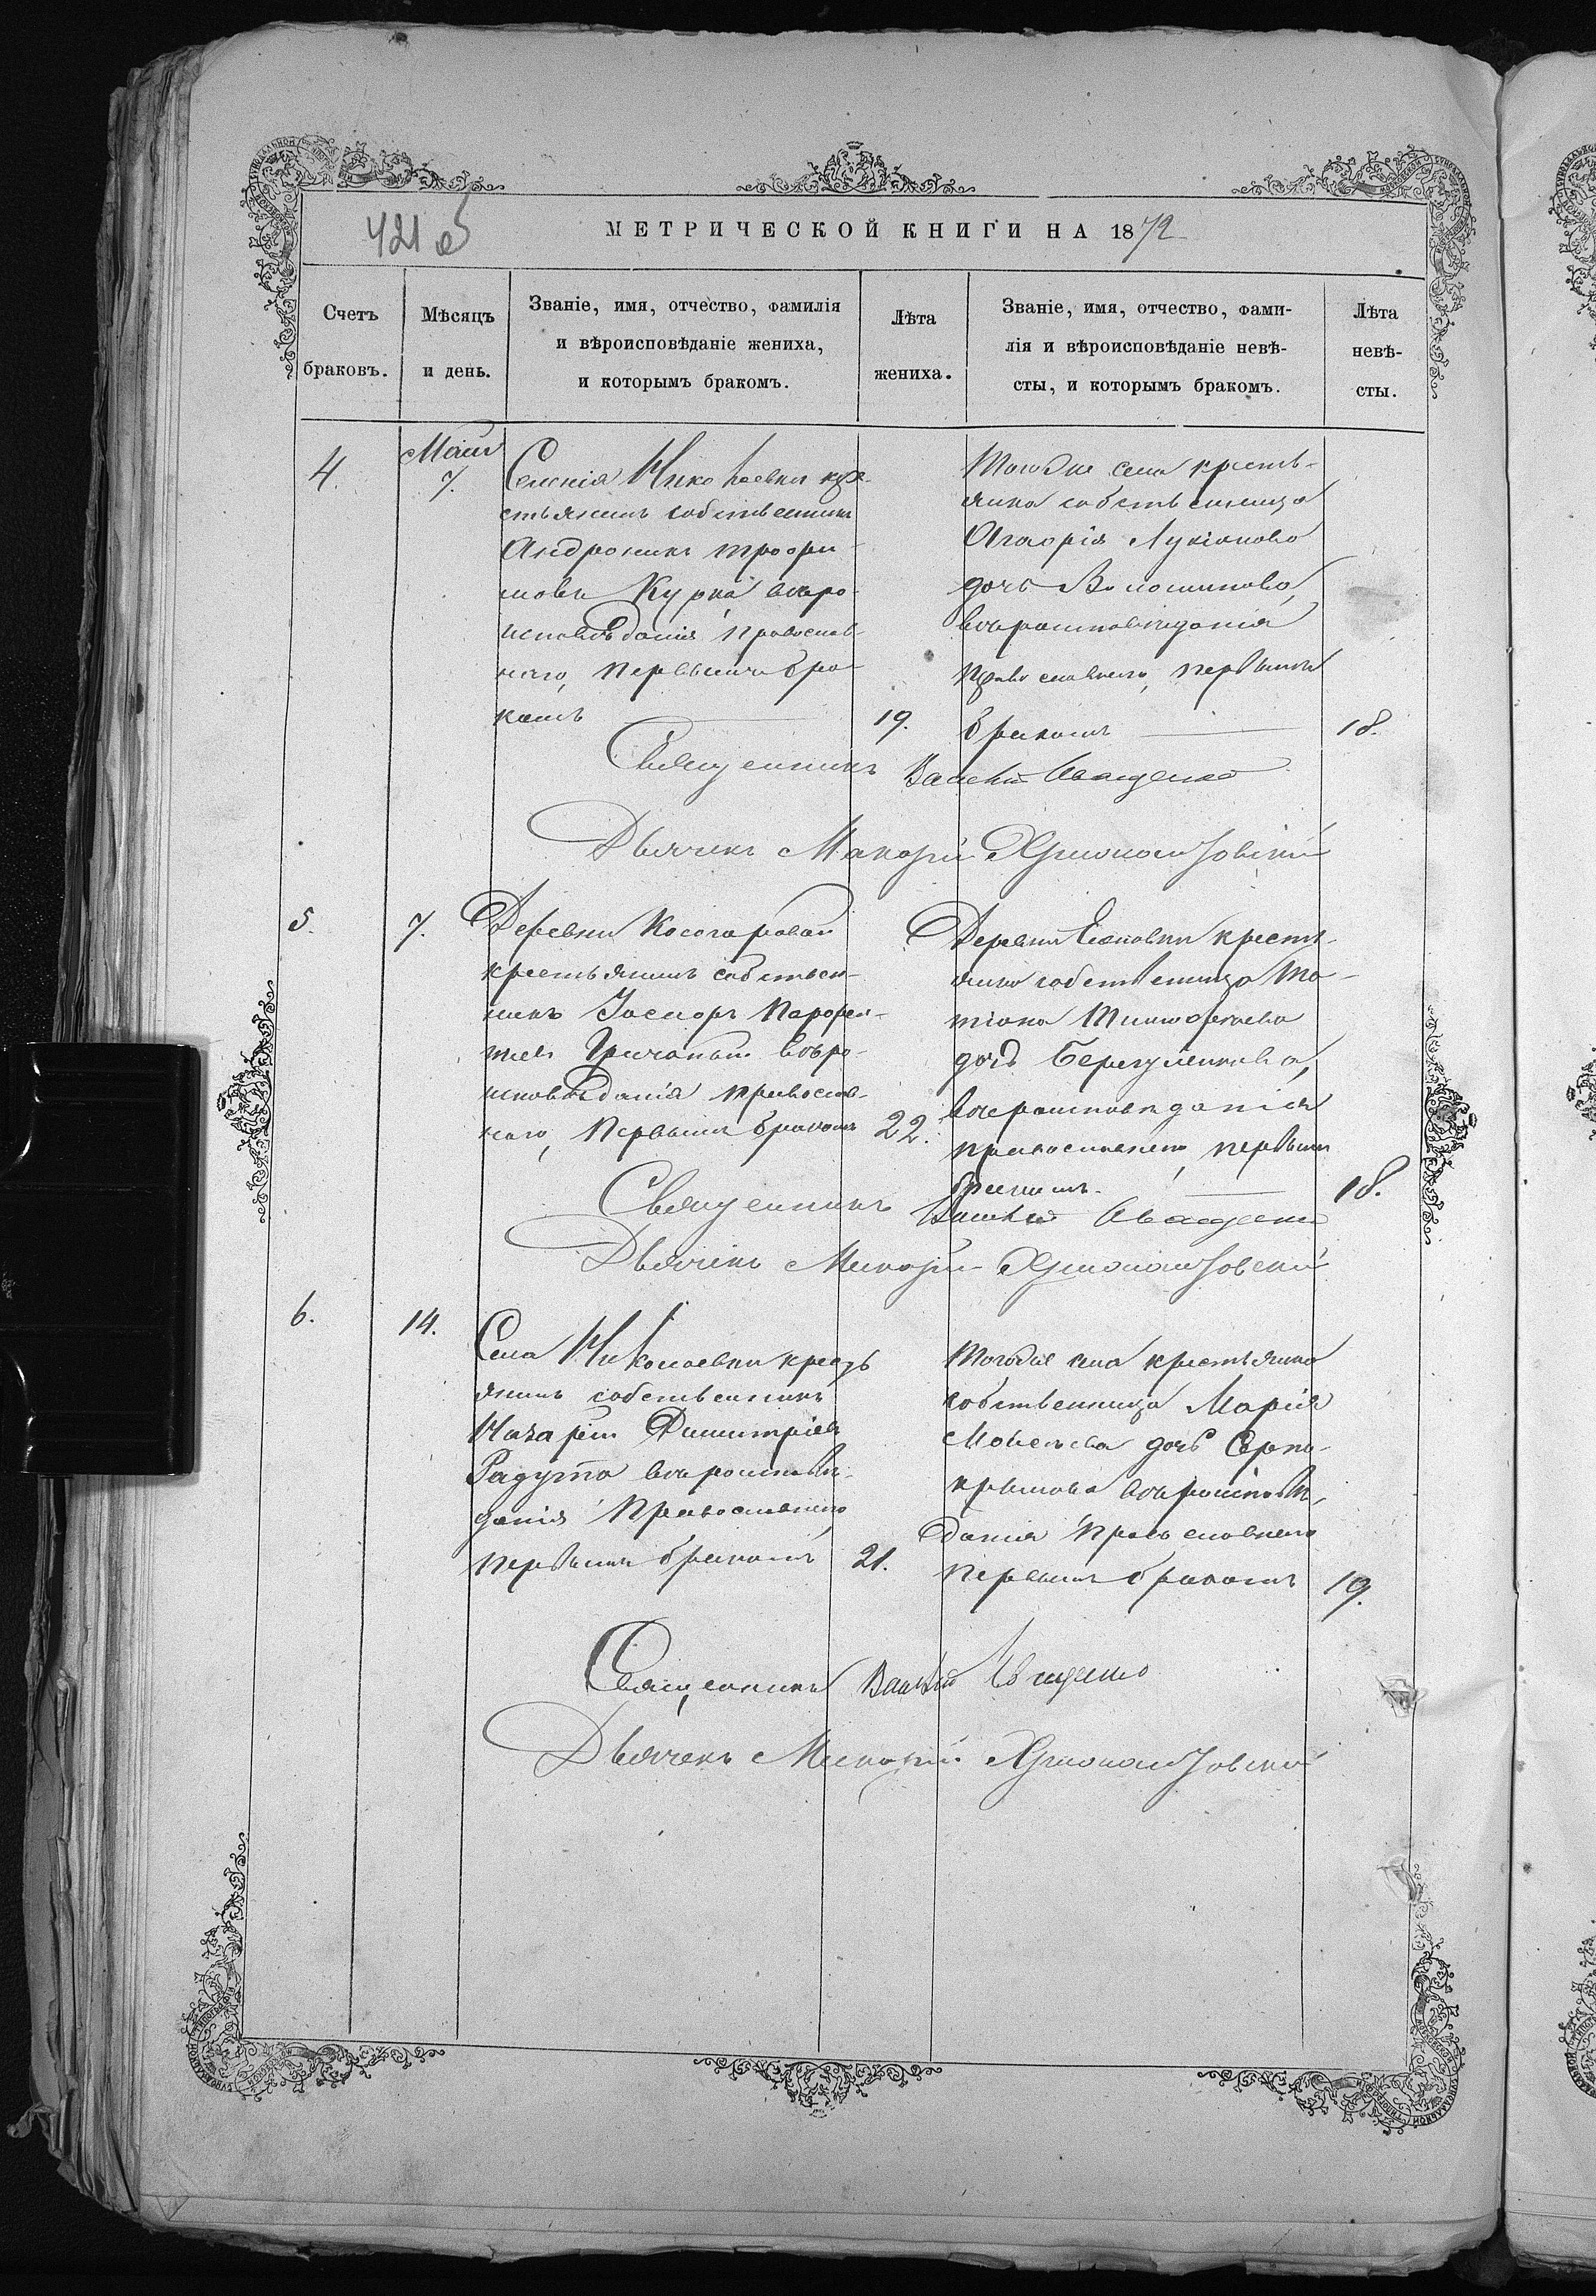 421 об
МЕТРИЧЕСКОЙ КНИГИ НА 1872
Счетъ браковъ.
Мѣсяцъ и день.
Званіе, имя, отчество, фамилія
и вѣроисповѣданіе жениха,
и которымъ бракомъ.
Лѣта жениха.
Званіе, имя, отчество, фами-
лія и вѣроисповѣданіе невѣ-
сты, и которымъ бракомъ.
Лѣта невѣ-
сты.
4.
Маiя
7.
Николаевки кре-
стьянинъ собственникъ
Андроникъ Трофи-
мовъ Курка вѣро-
исповѣданія православ-
наго, первымъ бра-
комъ
19.
Тогоже села кресть-
янка собственница
Лукіянова
дочь Волошинова,
вѣроисповѣданія
православнаго, первымъ
бракомъ
18.
Священникъ Василій Иващенко
Дьячекъ Макарій
5.
7.
Деревни Косогаровой
крестьянинъ собствен-
никъ Парфен-
тіевъ вѣро-
исповѣданія православ-
наго, первымъ бракомъ
22.
Деревни крестья-
янка собственница Та-
тіана Тимофеева
дочь
вѣроисповѣданія
православнаго, первымъ
бракомъ.
18.
Священникъ Василій Иващенко
Дьячекъ Макарій
6.
14.
Села Николаевки кресть
янинъ собственникъ
Назарій Димитріевъ
Радута вѣроисповѣ-
данія православнаго
первымъ бракомъ
21.
Тогоже села крестьянка
собственница Марія
Моисеева дочь
вѣроисповѣ-
данія православнаго
первымъ бракомъ
19.
Священникъ Василій Иващенко
Дьячекъ Макарій